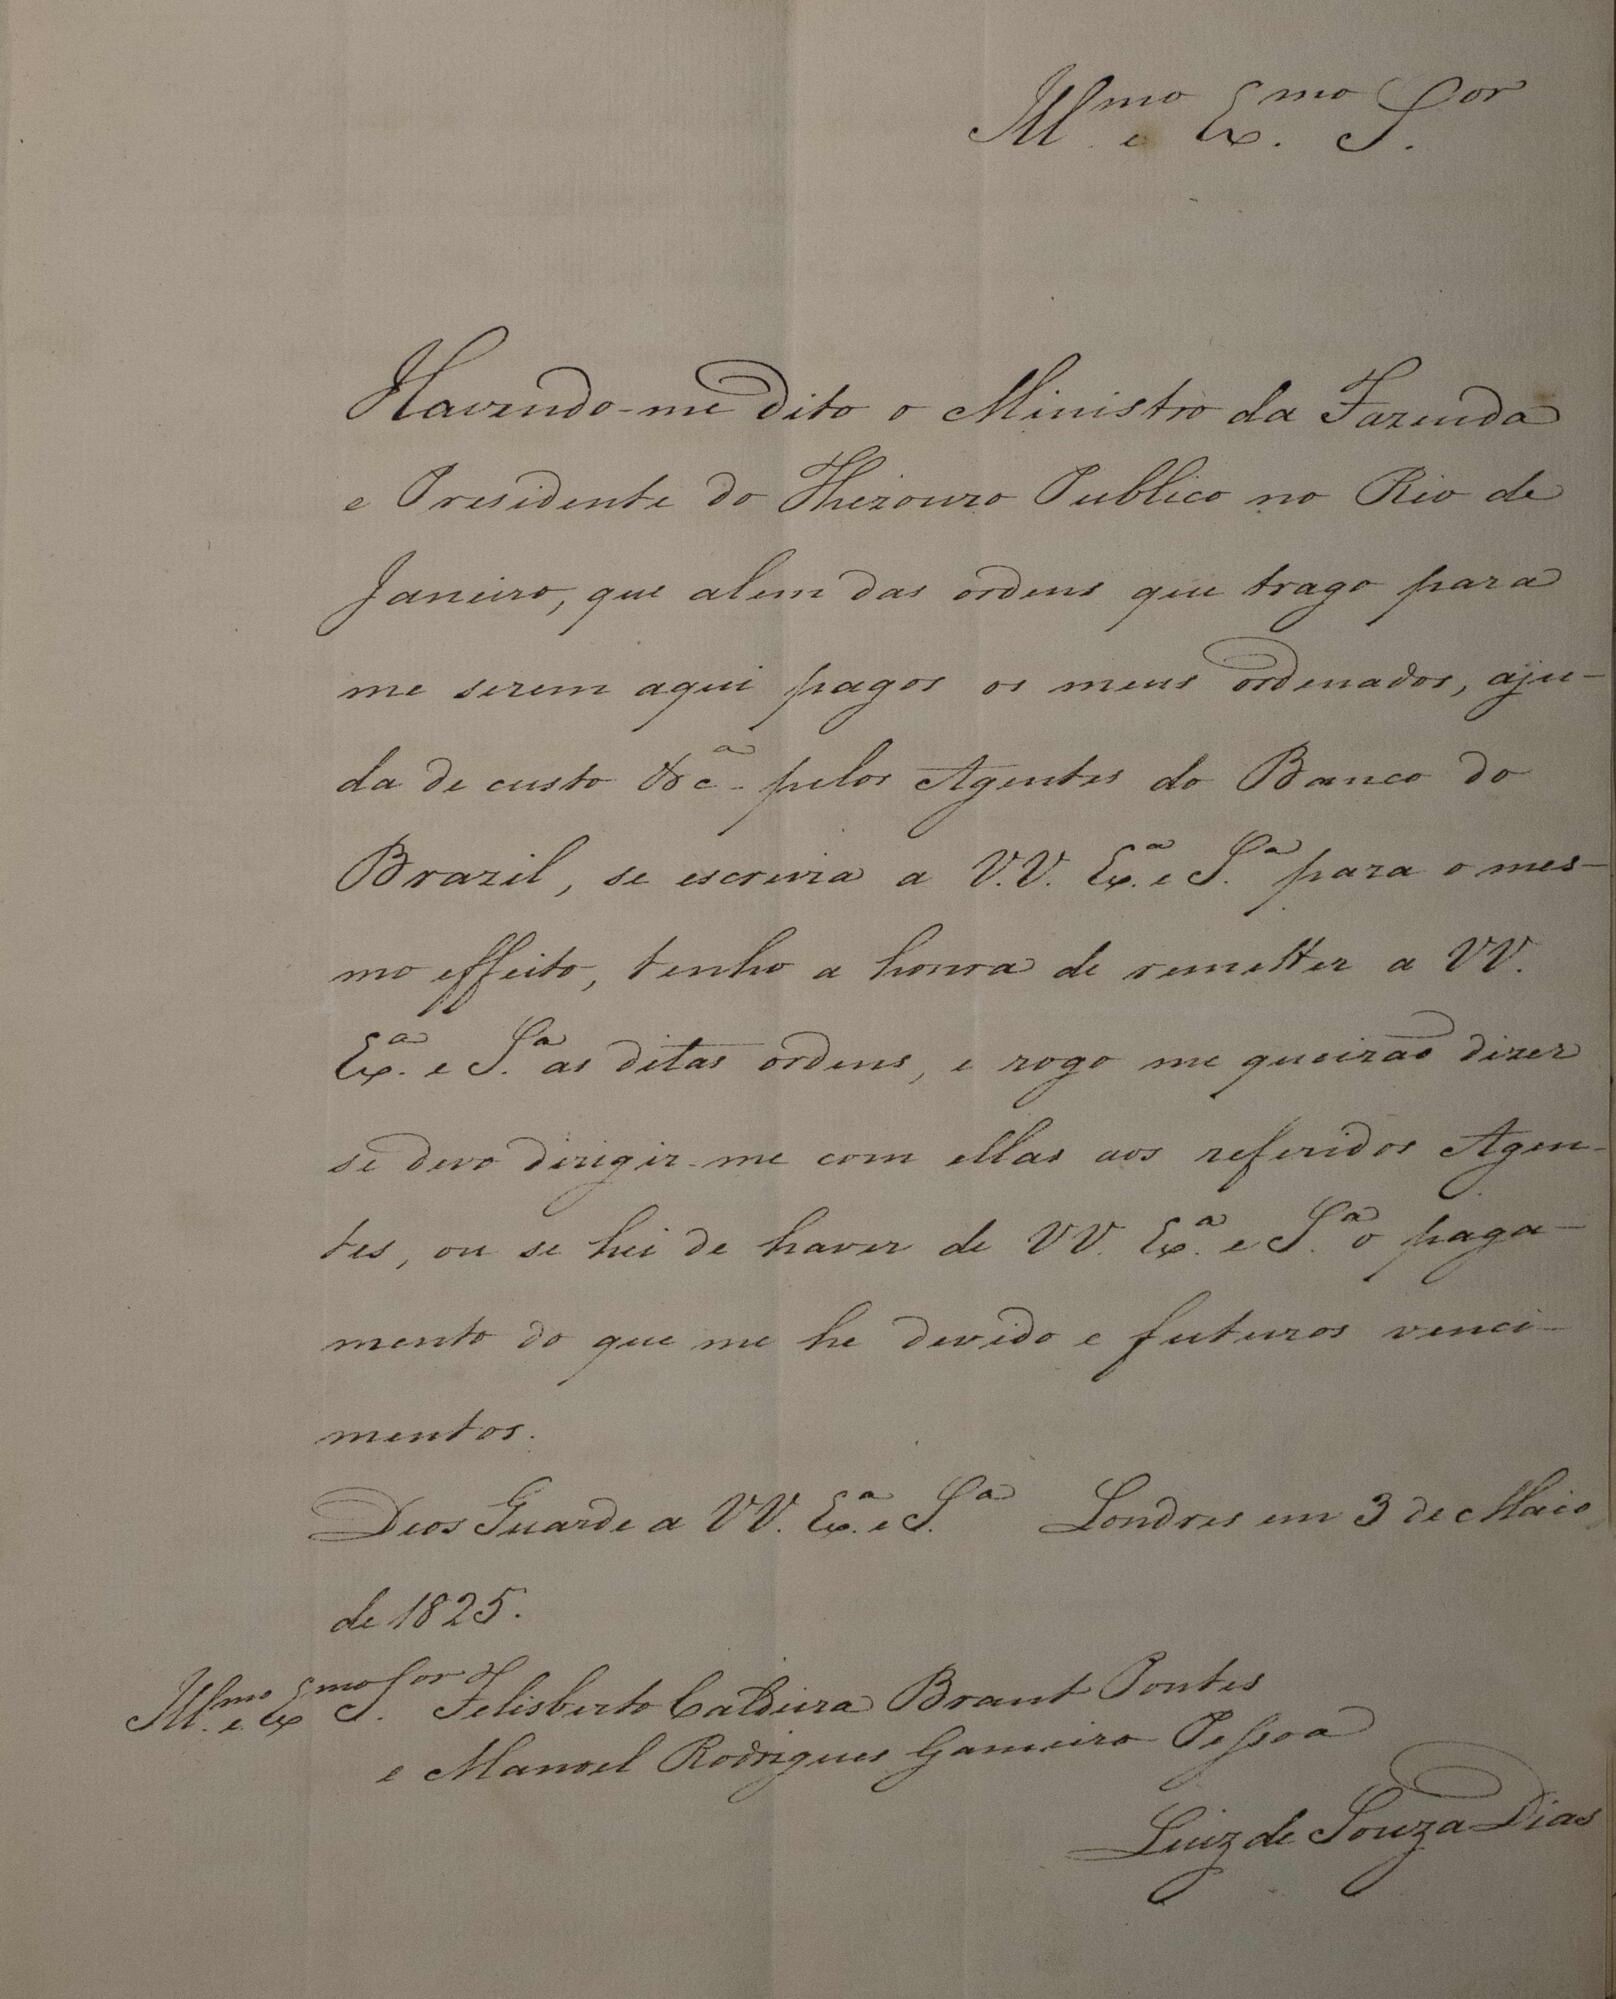 Ill.mo e Ex.mo S.or
Havendo-me dito o Ministro da Fazenda
e Presidente do Thezouro Publico no Rio de
Janeiro, que alem das ordens que trago para
me serem aqui pagos os meus ordenados, aju-
da de custo &c.ª pelos Agentes do Banco do
Brazil, se escrevia a V.V. Ex.ª e S.ª para o mes-
mo effeito, tenho a honra de remetter a VV.
Ex.ª e S.ª as ditas ordens, e rogo me queirão dizer
se devo dirigir-me com ellas aos referidos Agen-
tes, ou se hei de haver de VV. Ex.ª e S.ª o paga-
mento do que me he devido e futuros venci-
mentos.
Deos Guarde a VV. Ex.ª e S.ª Londres em 3 de Maio
de 1825.
Ill.mo e Ex.mo S.or Felisberto Caldeira Brant Pontes
e Manoel Rodrigues Gameiro Pessoa
Luiz de Souza Dias